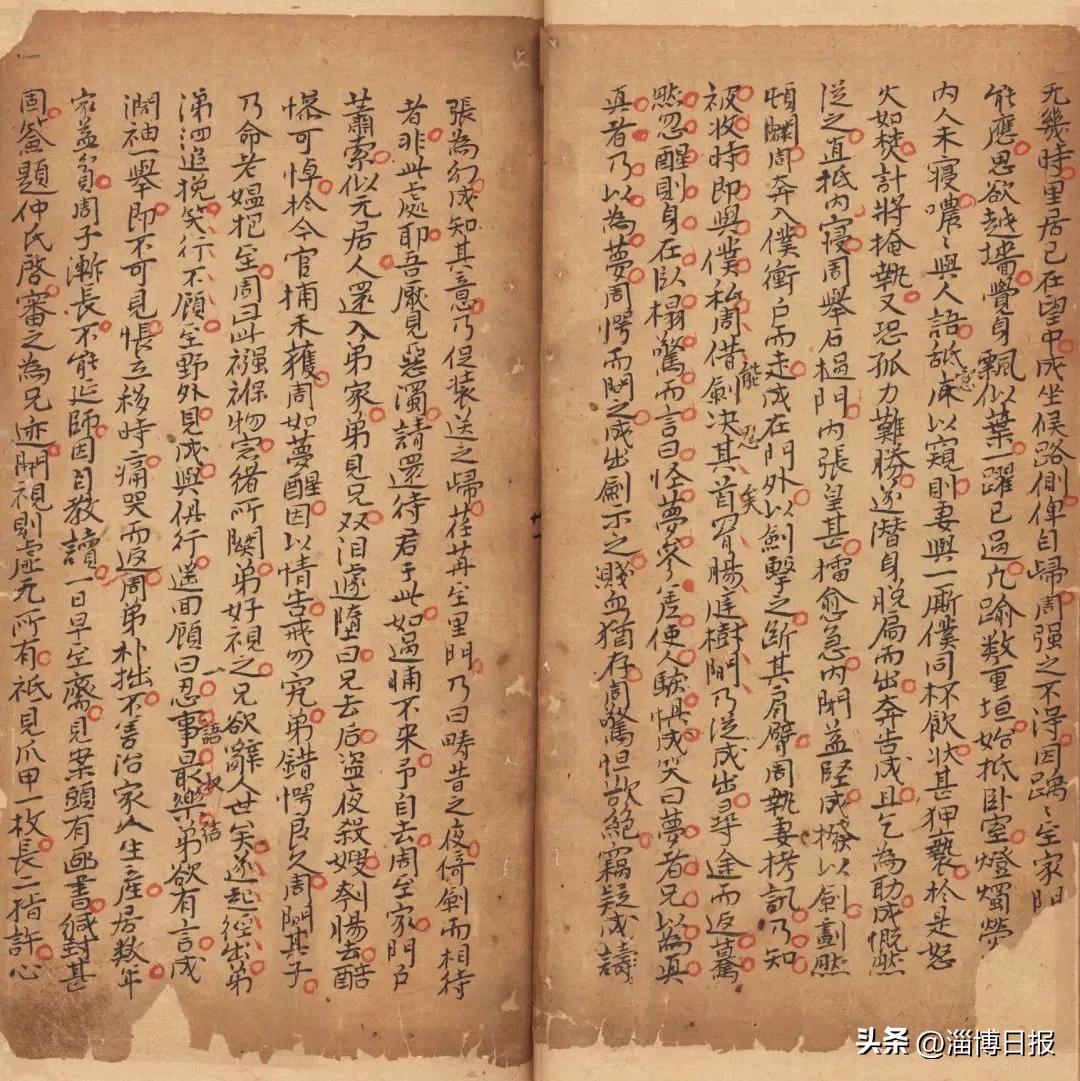 无幾時里居已在望中成坐候路側俾自歸周强之不得因踽〻至家門
能應思欲越墻覺身飄似葉一躍已過凡踰數重垣始抵卧室燈燭熒
内人未寢噥〻與人語舐窓以窺則妻與一厮僕同杯飲狀甚狎褻於是怒
火如焚計將掩執又恐孤力難勝遂潜身脱扃而出奔告成且乞為助成慨然
從之直抵内寢周舉石撾門内張皇甚擂愈急内閉益堅成撥以劍劃然
頓闢周奔入僕衝户而走成在門外以劍擊之断其肩臂周執妻拷訊乃知
能忍矣
被收時即與僕私周借劍决其首罥腸庭樹間乃從成出尋途而返驀
然忽醒則身在卧榻驚而言曰怪夢參差使人駭惧成笑曰夢者兄以為真
真者乃以為夢周愕而問之成出劍示之賤血猶存周驚怛欲絶竊疑成譸
張為幻成知其意乃促装送之歸荏苒至里門乃曰疇昔之夜倚劍而相待
者非此處耶吾厭見惡濁請還待君于此如過晡不來予自去周至家門户
蕭索似无居人還入弟家弟見兄双泪遽墮曰兄去后盗夜殺嫂刳腸去酷
惨可悼於今官捕未獲周如夢醒因以情告戒勿究弟錯愕良久周問其子
乃命老媼抱至周曰此襁褓物宗绪所関弟好視之兄欲辭人世矣遂起徑出弟
涕泗追挽笑行不顧至野外見成與俱行遥回顧曰忍事最樂弟欲有言成
一語
濶袖一舉即不可見悵立移時痛哭而返周弟朴拙不善治家人生産居数年
家益貧周子漸長不能延師因自教讀一日早至齋見案頭有函書緘封甚
固簽題仲氏啓審之為兄迹開視則虚无所有祇見爪甲一枚長二指許心
头条 @淄博日报